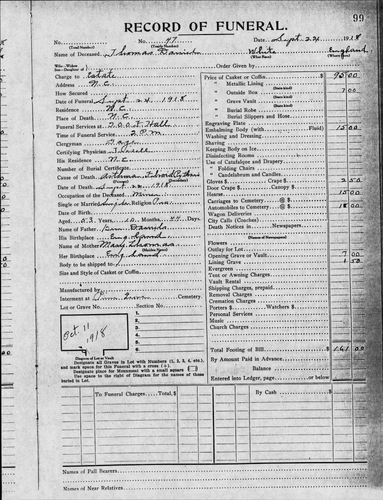 99
RECORD OF FUNERAL.
No. 47
(Total Number) (Yearly Number)
Date, Sept 24 1918
Name of Deceased, Thomas Daniels White England
(What Race) (Where Born)
Order Given by
Charge to Estate
Address N.C.
How Secured
Date of Funeral Sept 24, 1918
Residence N.C.
Place of Death N.C.
Funeral Services at I.O.O.F. Hall
Time of Funeral Service 2 P.M.
Clergyman
Certifying Physician
His Residence N.C.
Number of Burial Certificate
Cause of Death
Date of Death Sept 22 1918
Occupation of the Deceased Miner
Single or Married Single Religion
Date of Birth
Aged 53 Years 10 Months Days
Name of Father Daniels
His Birthplace England
Name of Mother Mary Thomas
Her Birthplace England
Body to be shipped
Size and Style of Casket or Coffin
Manufactured by
Interment at Cemetery
Lot or Grave No. Section No.
Oct 11 1918
1.
2.
3.
4.
5.
6.
7.
Diagram of Lot or Vault
Designate all Graves in Lot with Numbers (1, 2, 3, 4, etc.), and mark space for this Funeral with a cross (+).
Designate place for Monument with a small square
Use space to the right of Diagram for the names of those buried in Lot.
Price of Casket or Coffin $ 95 00
" Metallic Lining
" Outside Box 7 00
" Grave Vault
" Burial Robe
" Burial Slippers and Hose
Engraving Plate
Embalming Body (with Fluid) 15 00
Washing and Dressing
Shaving
Keeping Body on Ice
Disinfecting Rooms
Use of Catafalque and Drapery
" Folding Chairs
" Candelabrum and Candles
Gloves $ 2 50
Door Crape $ Candles $
Hearse 15 00
Carriages to Cemetery @ $
Automobiles to Cemetery @ $ 18 00
Wagon Deliveries
City Calls (Coaches)
Death Notices in Newspapers
Flowers
Outlay for Lot
Opening Grave or Vault 7 00
Lining Grave 1 50
Evergreen
Tent or Awning Charges
Vault Rental
Shipping Charges, prepaid
Removal Charges
Cremation Charges
Porters $ Watchers $
Personal Services
Music
Church Charges
Total Footing of Bill $ 161 00
By Amount Paid in Advance
Balance
Entered into Ledger, page or below.
To Funeral Charges
By Cash
Total
Balance
Names of Pall Bearers
Names of Near Relatives